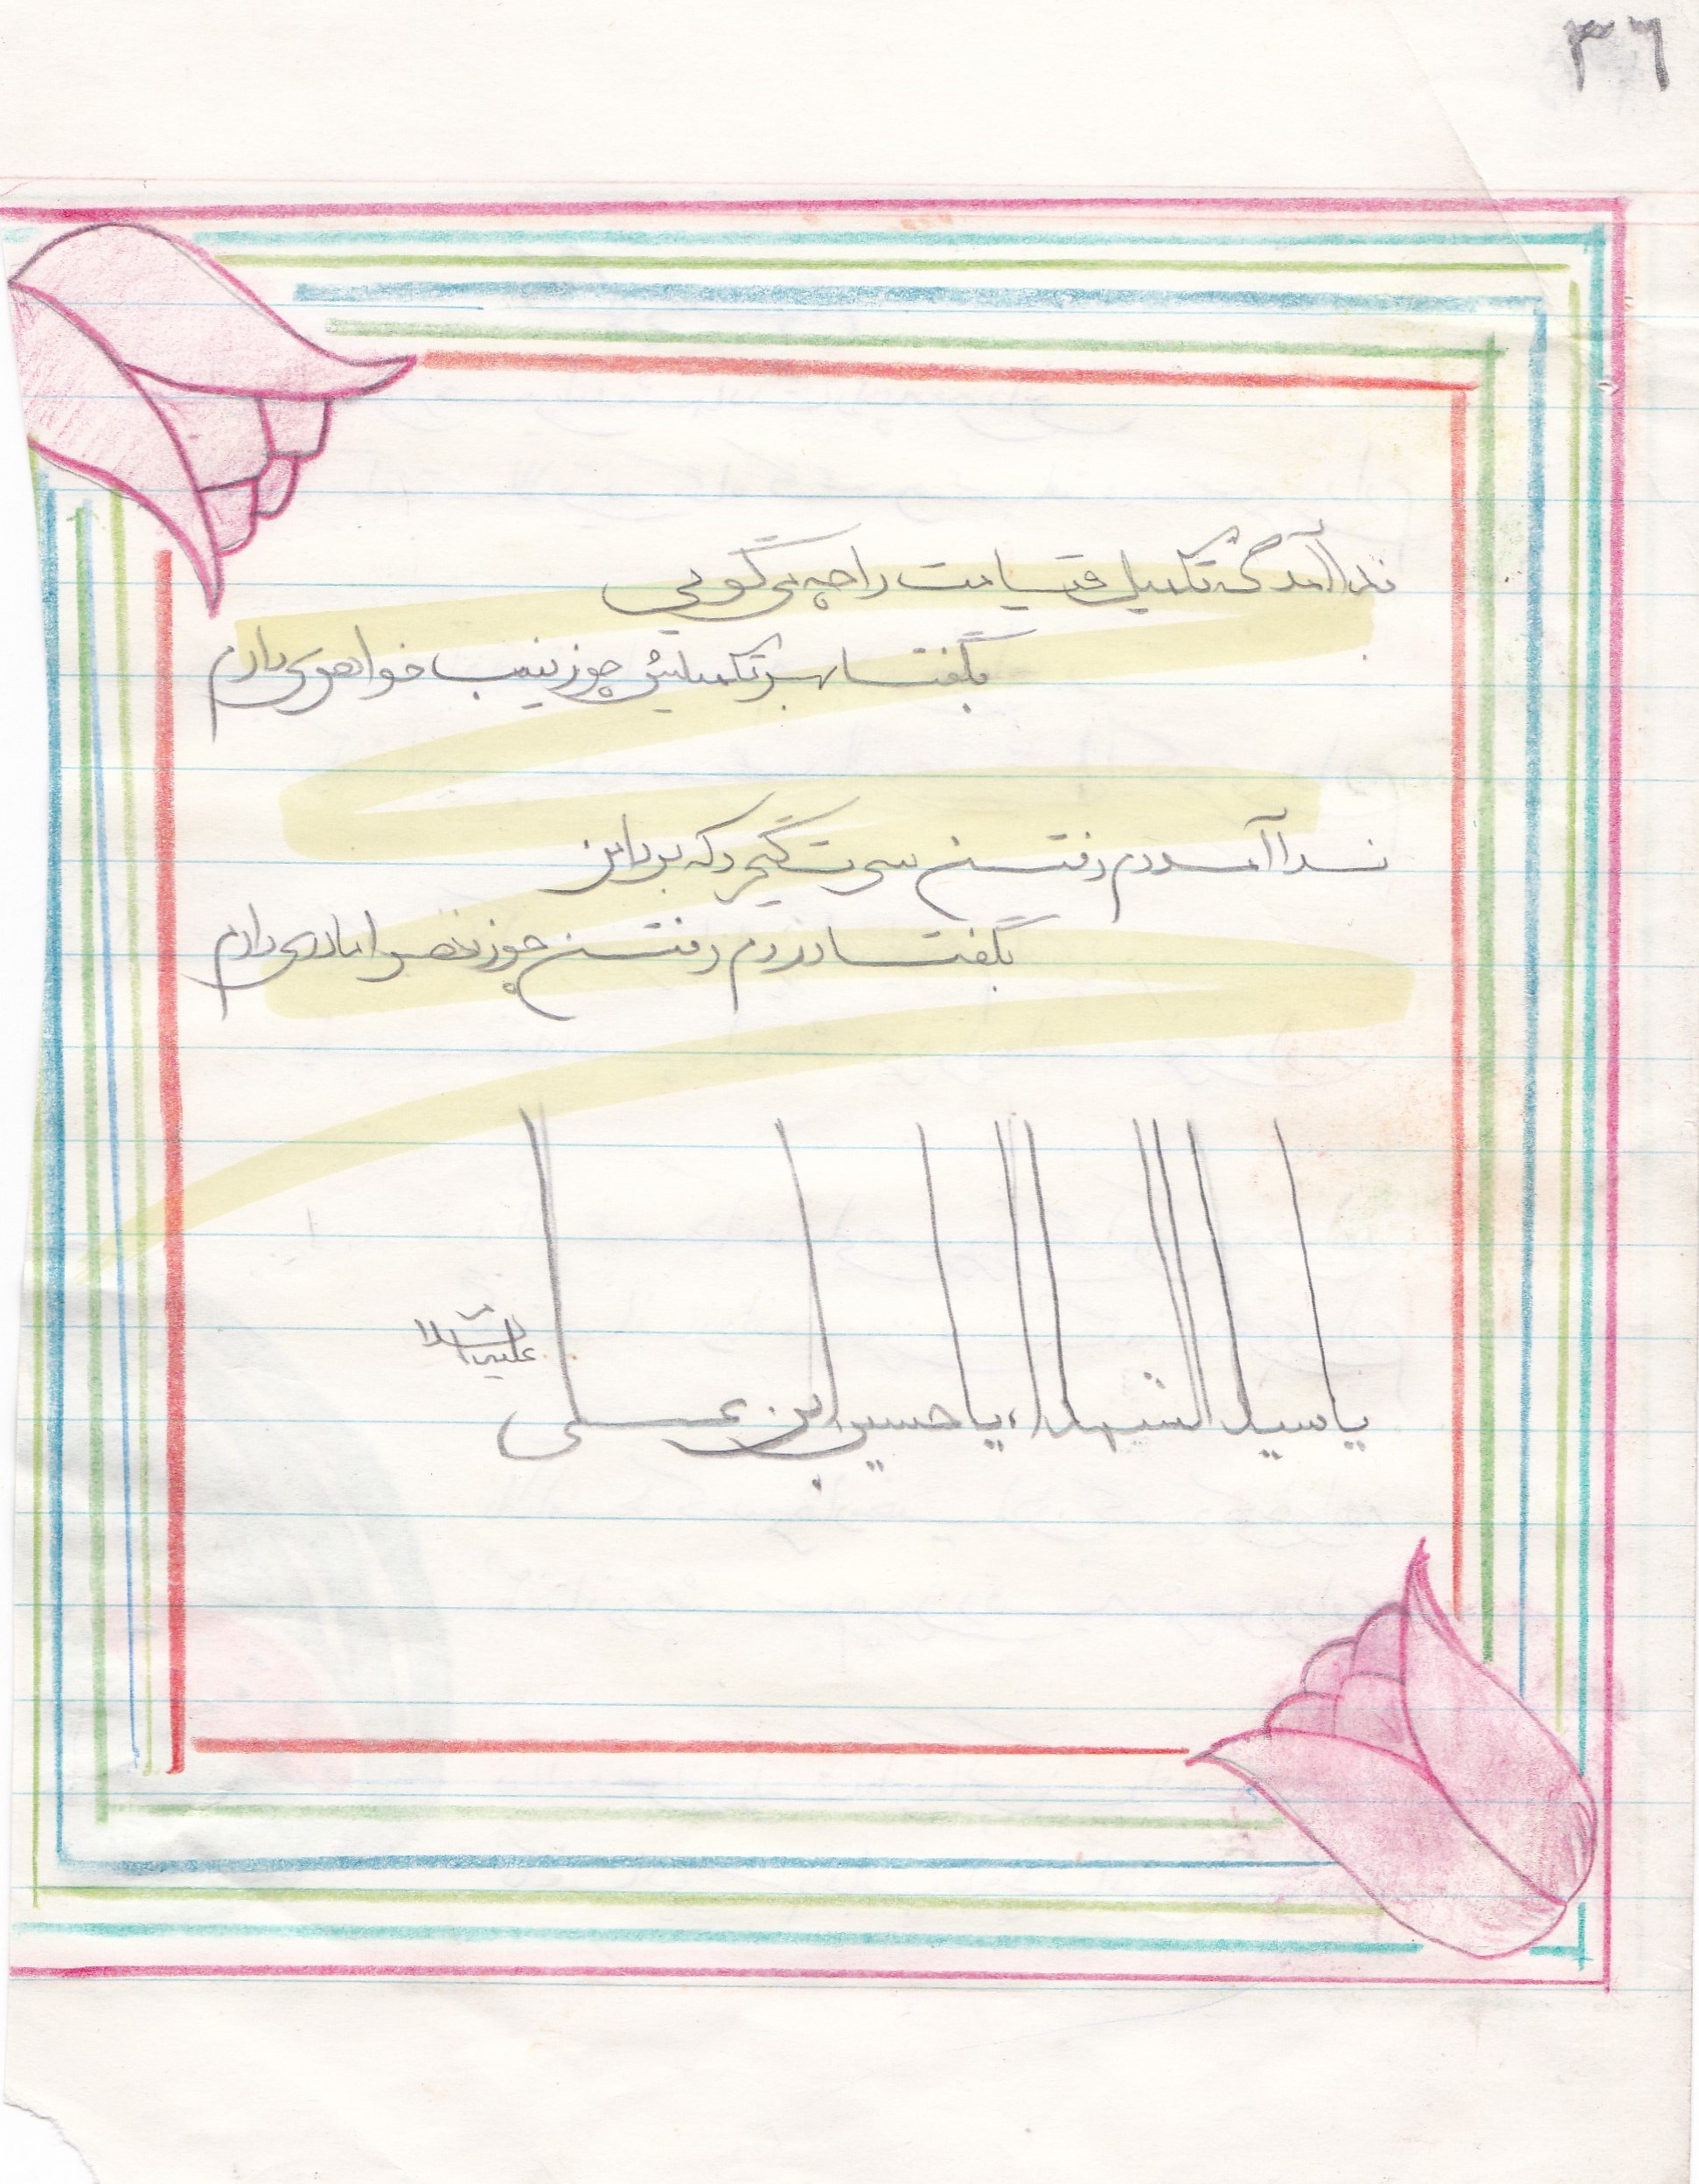 ۳۶
ندا آمد که تکمیل قیامت را چه می گویی
بگفتا بهر تکمیلش چو زینب خواهری دارم
ندا آمد دم رفتن سرت گیرد که بر دامن
بگفتا در دم رفتن چو زهرا مادری دارم
یا سید الشهداء یا حسین ابن علی
علیه السلام